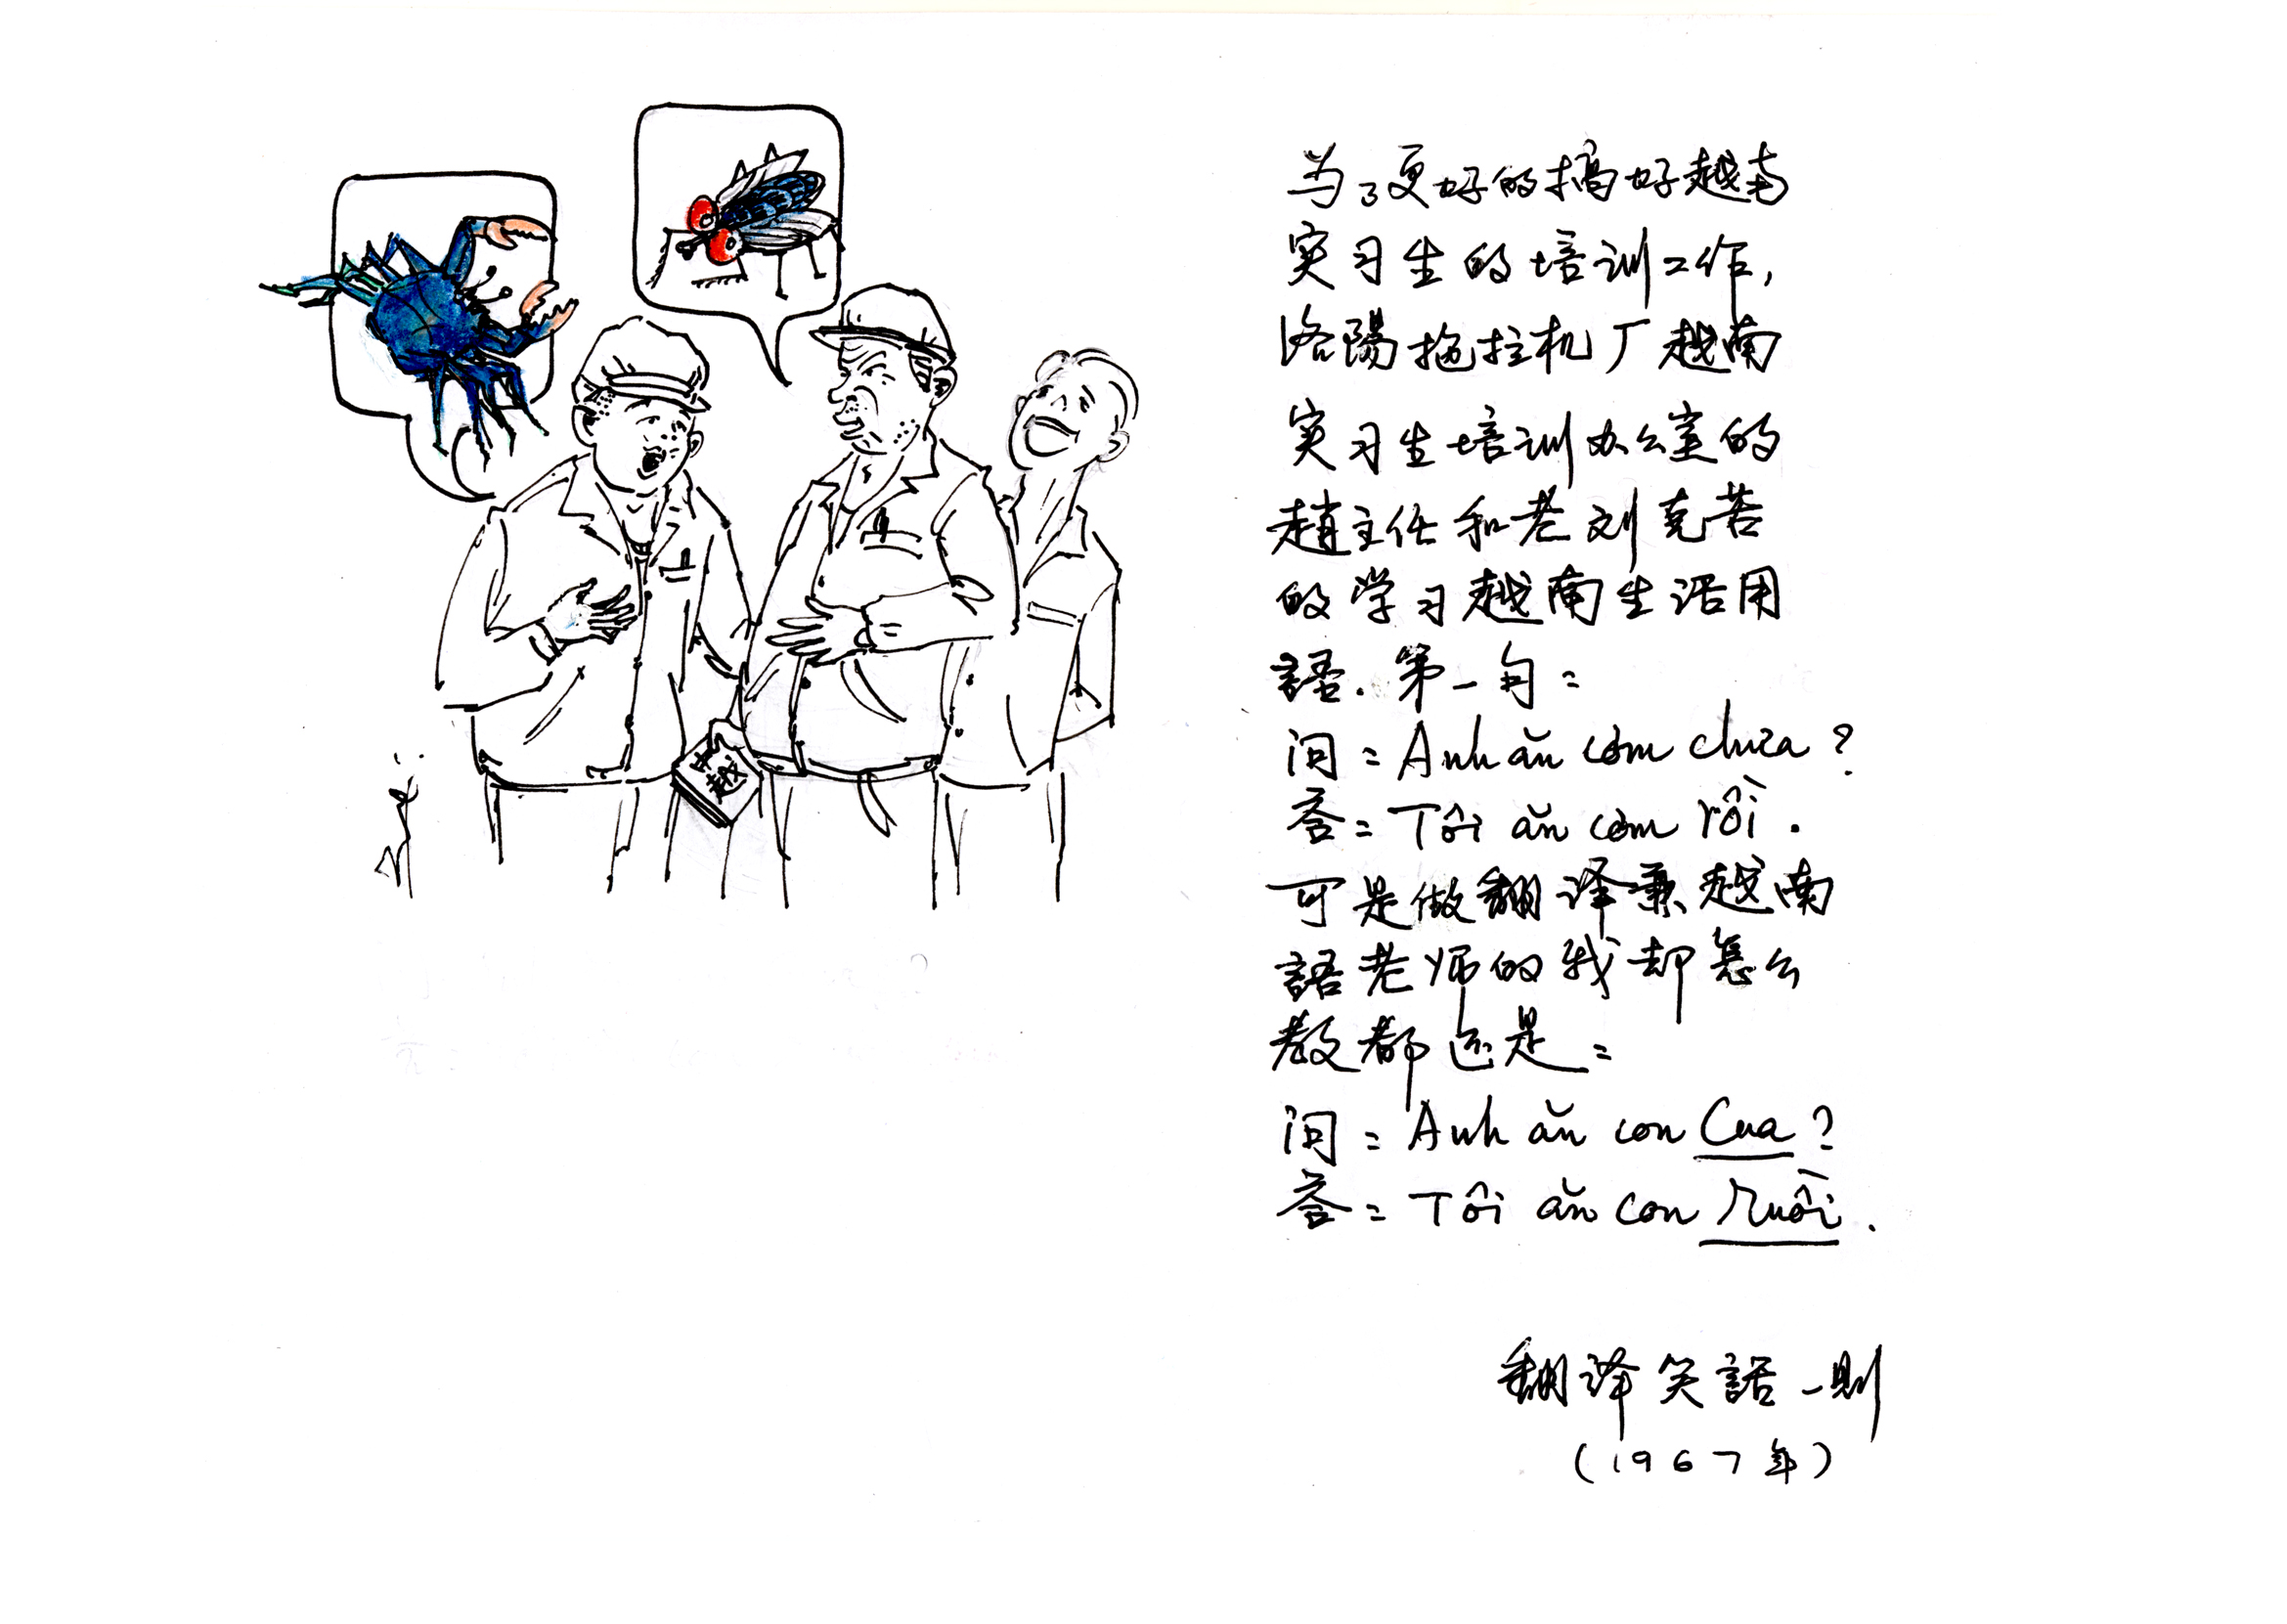 中越
为了更好的搞好越南
实习生的培训工作,
洛陽拖拉机厂越南
实习生培训办公室的
趙主任和老刘克苦
的学习越南生活用
語.第一句:
问:Anh ăn cơm chưa?
答:Tôi ăn cơm rồi.
可是做翻译兼越南
語老师的我却怎么
教都还是:
问:Anh ăn con Cua?
答:Tôi ăn con ruồi.
翻译笑話一则
(1967年)